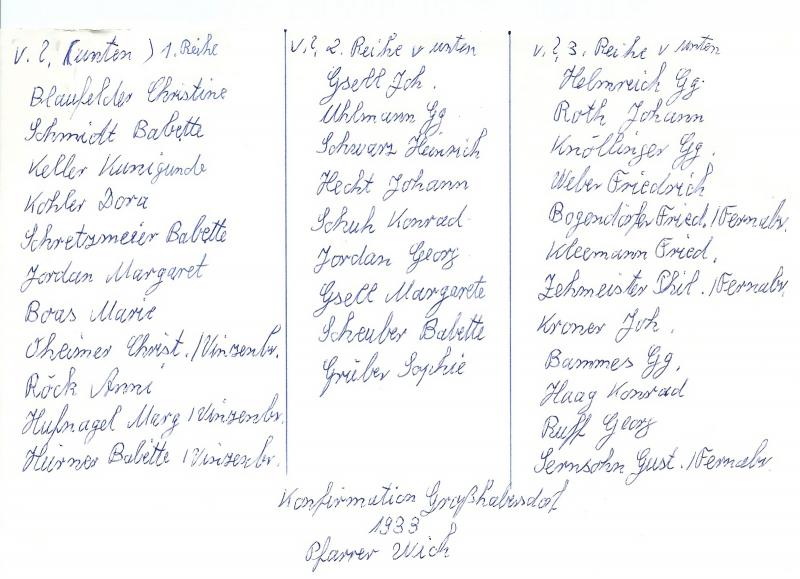 v. l. (unten) 1. Reihe
Blaufelder Christine
Schmidt Babette
Keller Kunigunde
Kohler Dora
Schretzmeier Babette
Jordan Margaret
Boas Marie
Oheimer Christ. /Vinzenbr.
Röck Anni
Hufnagel Marg /Vinzenbr.
Hürner Babette /Vinzenbr.
v. l. 2. Reihe v unten
Gsell Joh.
Uhlmann Gg
Schwarz Heinrich
Hecht Johann
Schuh Konrad
Jordan Georg
Gsell Margarete
Scheuber Babette
Grüber Sophie
v. l. 3. Reihe v unten
Helmreich Gg.
Roth Johann
Knöllinger Gg.
Weber Friedrich
Bogendörfer Fried. /Fernabr.
Kleemann Fried.
Zehmeister Phil. /Fernabr.
Kroner Joh.
Bammes Gg.
Haag Konrad
Ruff Georg
Sernsohn Gust. /Fernabr.
Konfirmation Großhabersdorf
1933
Pfarrer Wich